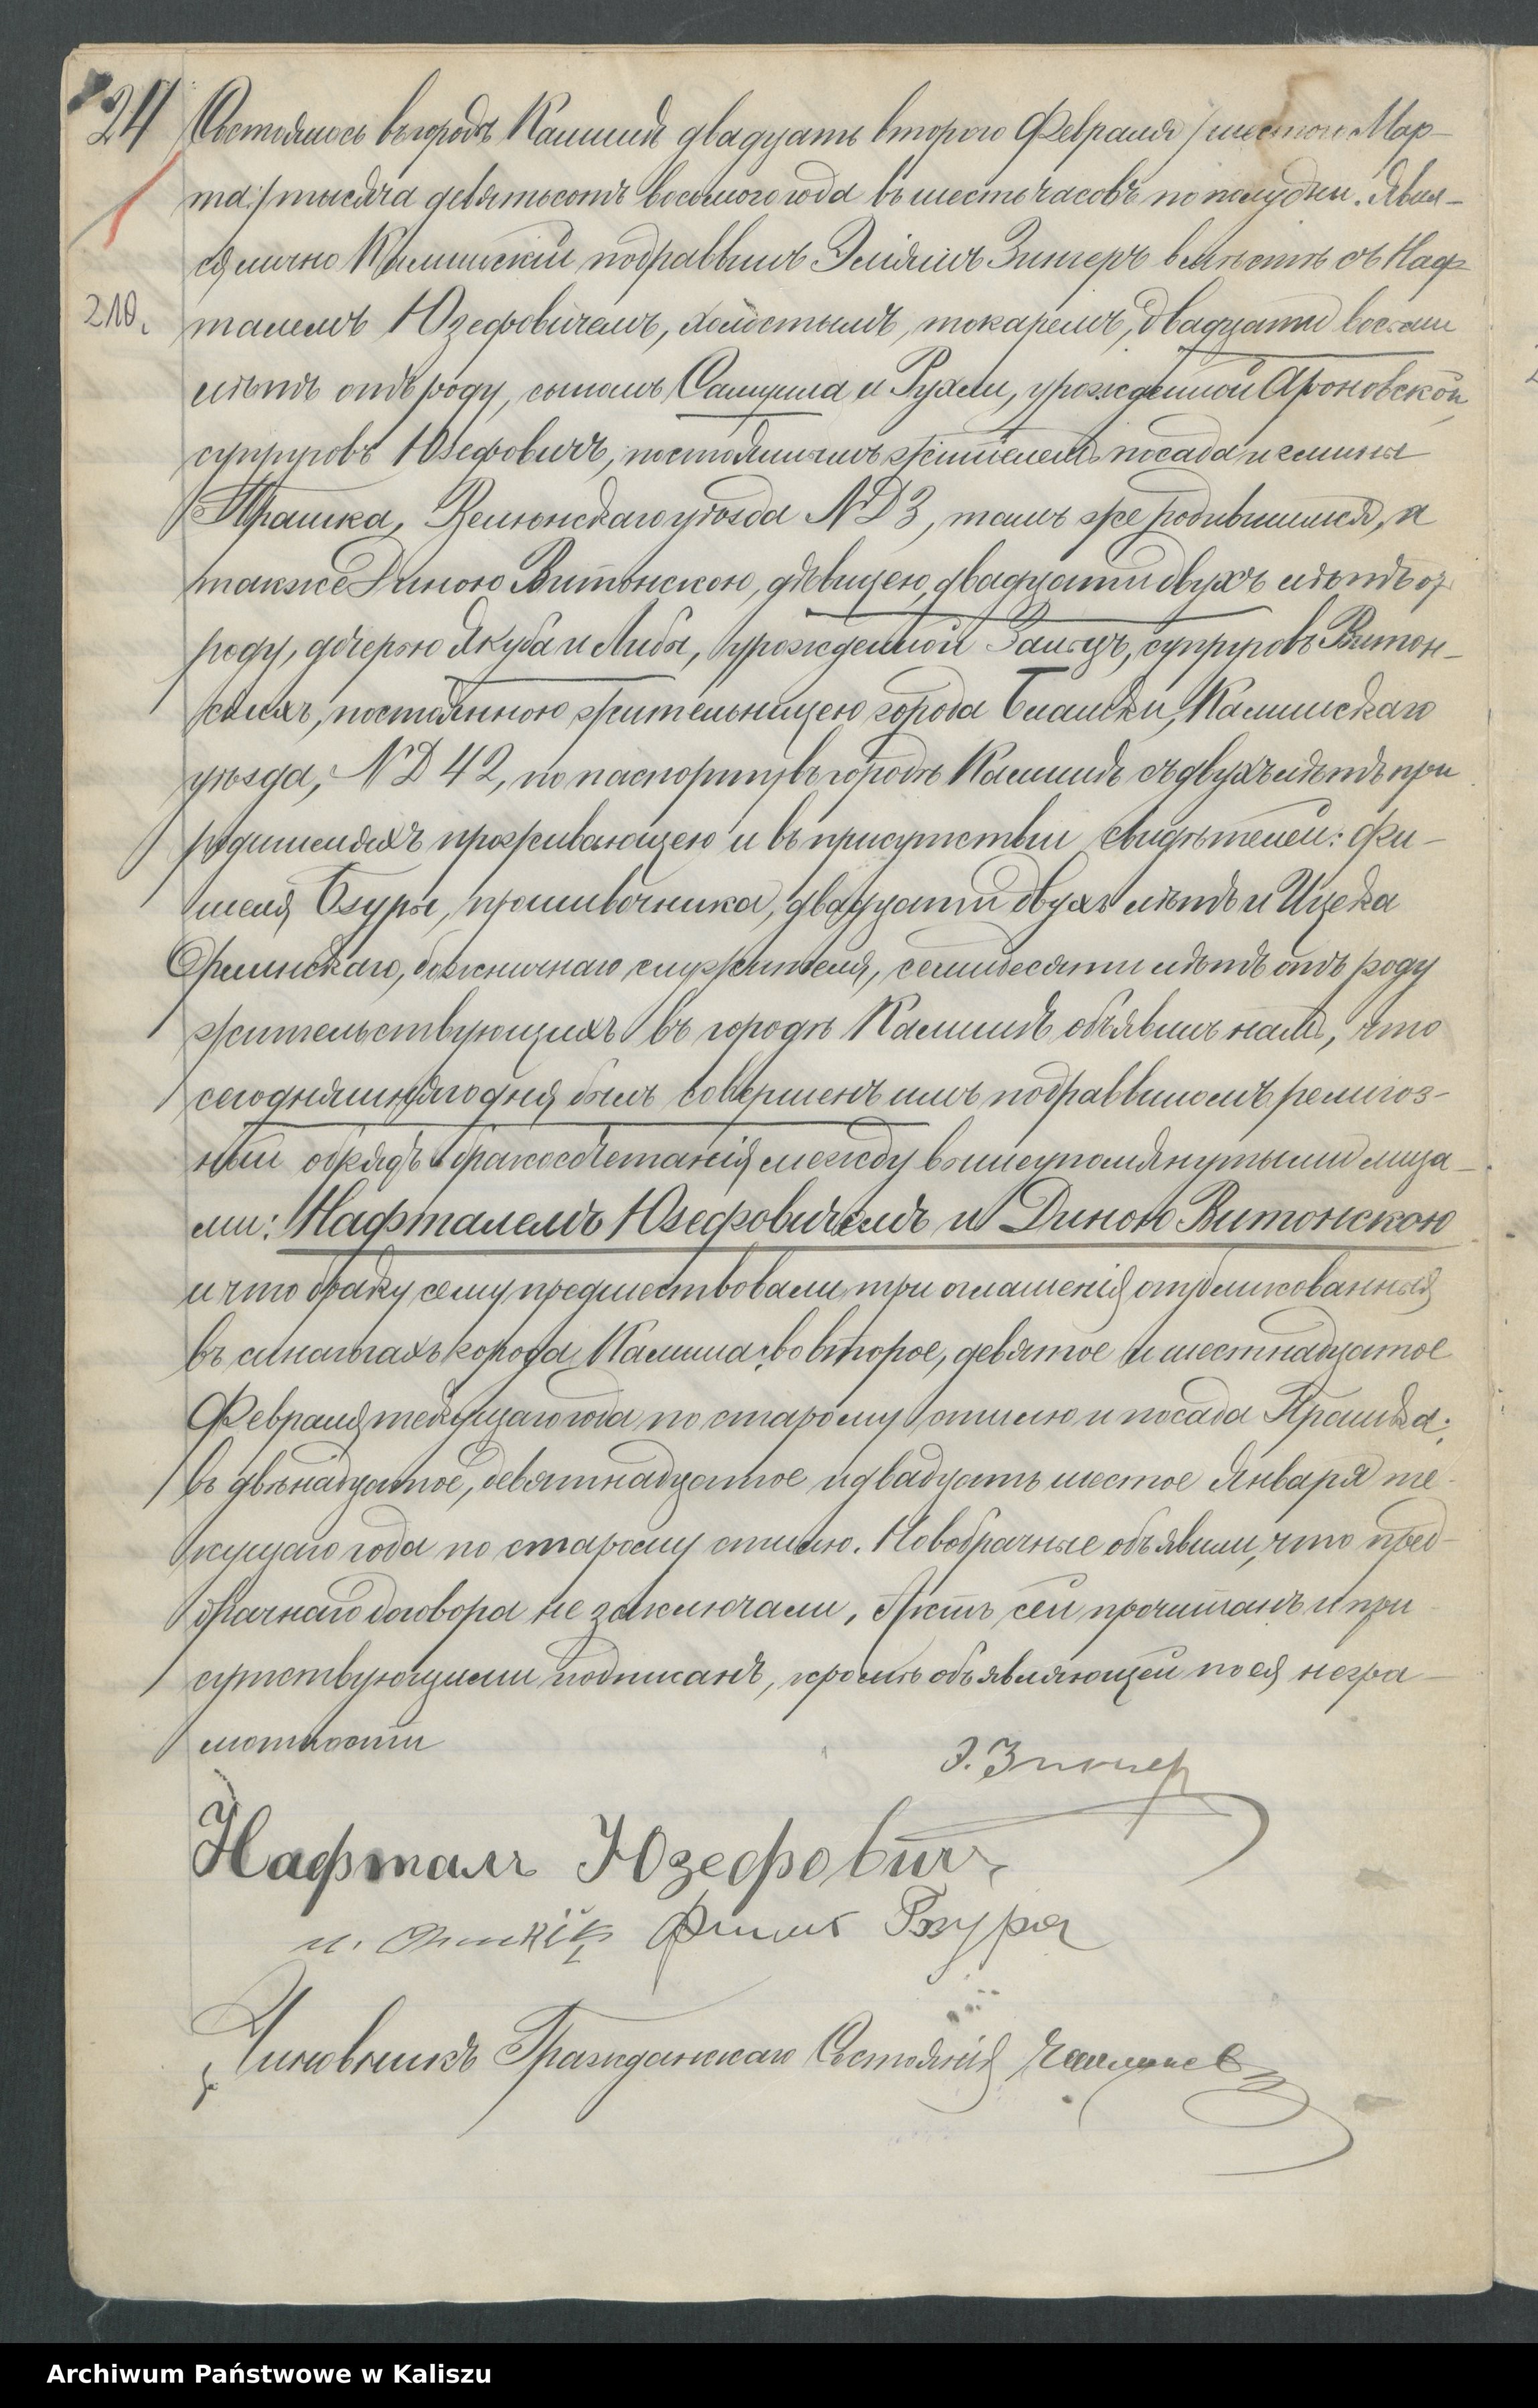 24
Состоялось въ городѣ Калишѣ двадцать второго Февраля /шестого Мар-
та:/ тысяча девятьсотъ восьмого года въ шесть часовъ по полудни. Явил-
ся лично Калишскій подраввинъ Зингеръ вмѣстѣ съ Наф-
210.
талемъ Юзефовичемъ, холостымъ, токаремъ, двадцати восьми
лѣтъ отъ роду, сыномъ Самуила и Рухли, урожденной Ароновской,
супруговъ Юзефовичъ, постояннымъ жителемъ посада и гмины
Прашка, Велюнскаго уѣзда № Д 3, тамъ же родившимся, и
также Диною Витонскою, дѣвицею, двадцати двухъ лѣтъ отъ
роду, дочерью Якуба и Либы, урожденной Зальцъ, супруговъ Витон-
скихъ, постоянною жительницею города Блашки, Калишскаго
уѣзда, № Д 42, по паспорту въ городѣ Калишѣ съ двухъ лѣтъ при
родителяхъ проживающею и въ присутствіи свидѣтелей: Фи-
шеля Бзуры, прошивочника, двадцати двухъ лѣтъ и Ицека
божничнаго служителя, семидесяти лѣтъ отъ роду
жительствующихъ въ городѣ Калишѣ объявилъ намъ, что
сегодняшняго дня былъ совершенъ имъ подраввиномъ религоз-
ный обрядъ бракосочетанія между вышеупомянутыми лица-
ми: Нафталемъ Юзефовичемъ и Диною Витонскою
и что браку сему предшествовали три оглашенія опубликованныя
въ синагогахъ города Калиша: во второе, девятое и шестнадцатое
Февраля текущаго года по старому стилю и посада Прашка:
въ двѣнадцатое, девятнадцатое и двадцать шестое Января те-
кущаго года по старому стилю. Новобрачные объявили, что пред-
брачнаго договора не заключали. Актъ сей прочитанъ и при-
сутствующими подписанъ, кромѣ объявляющей по ея негра-
мотности
Э. Зингер
Нафталъ Юзефовичъ
Фишлъ Бзура
Чиновникъ Гражданскаго Состоянія
Archiwum Państwowe w Kaliszu